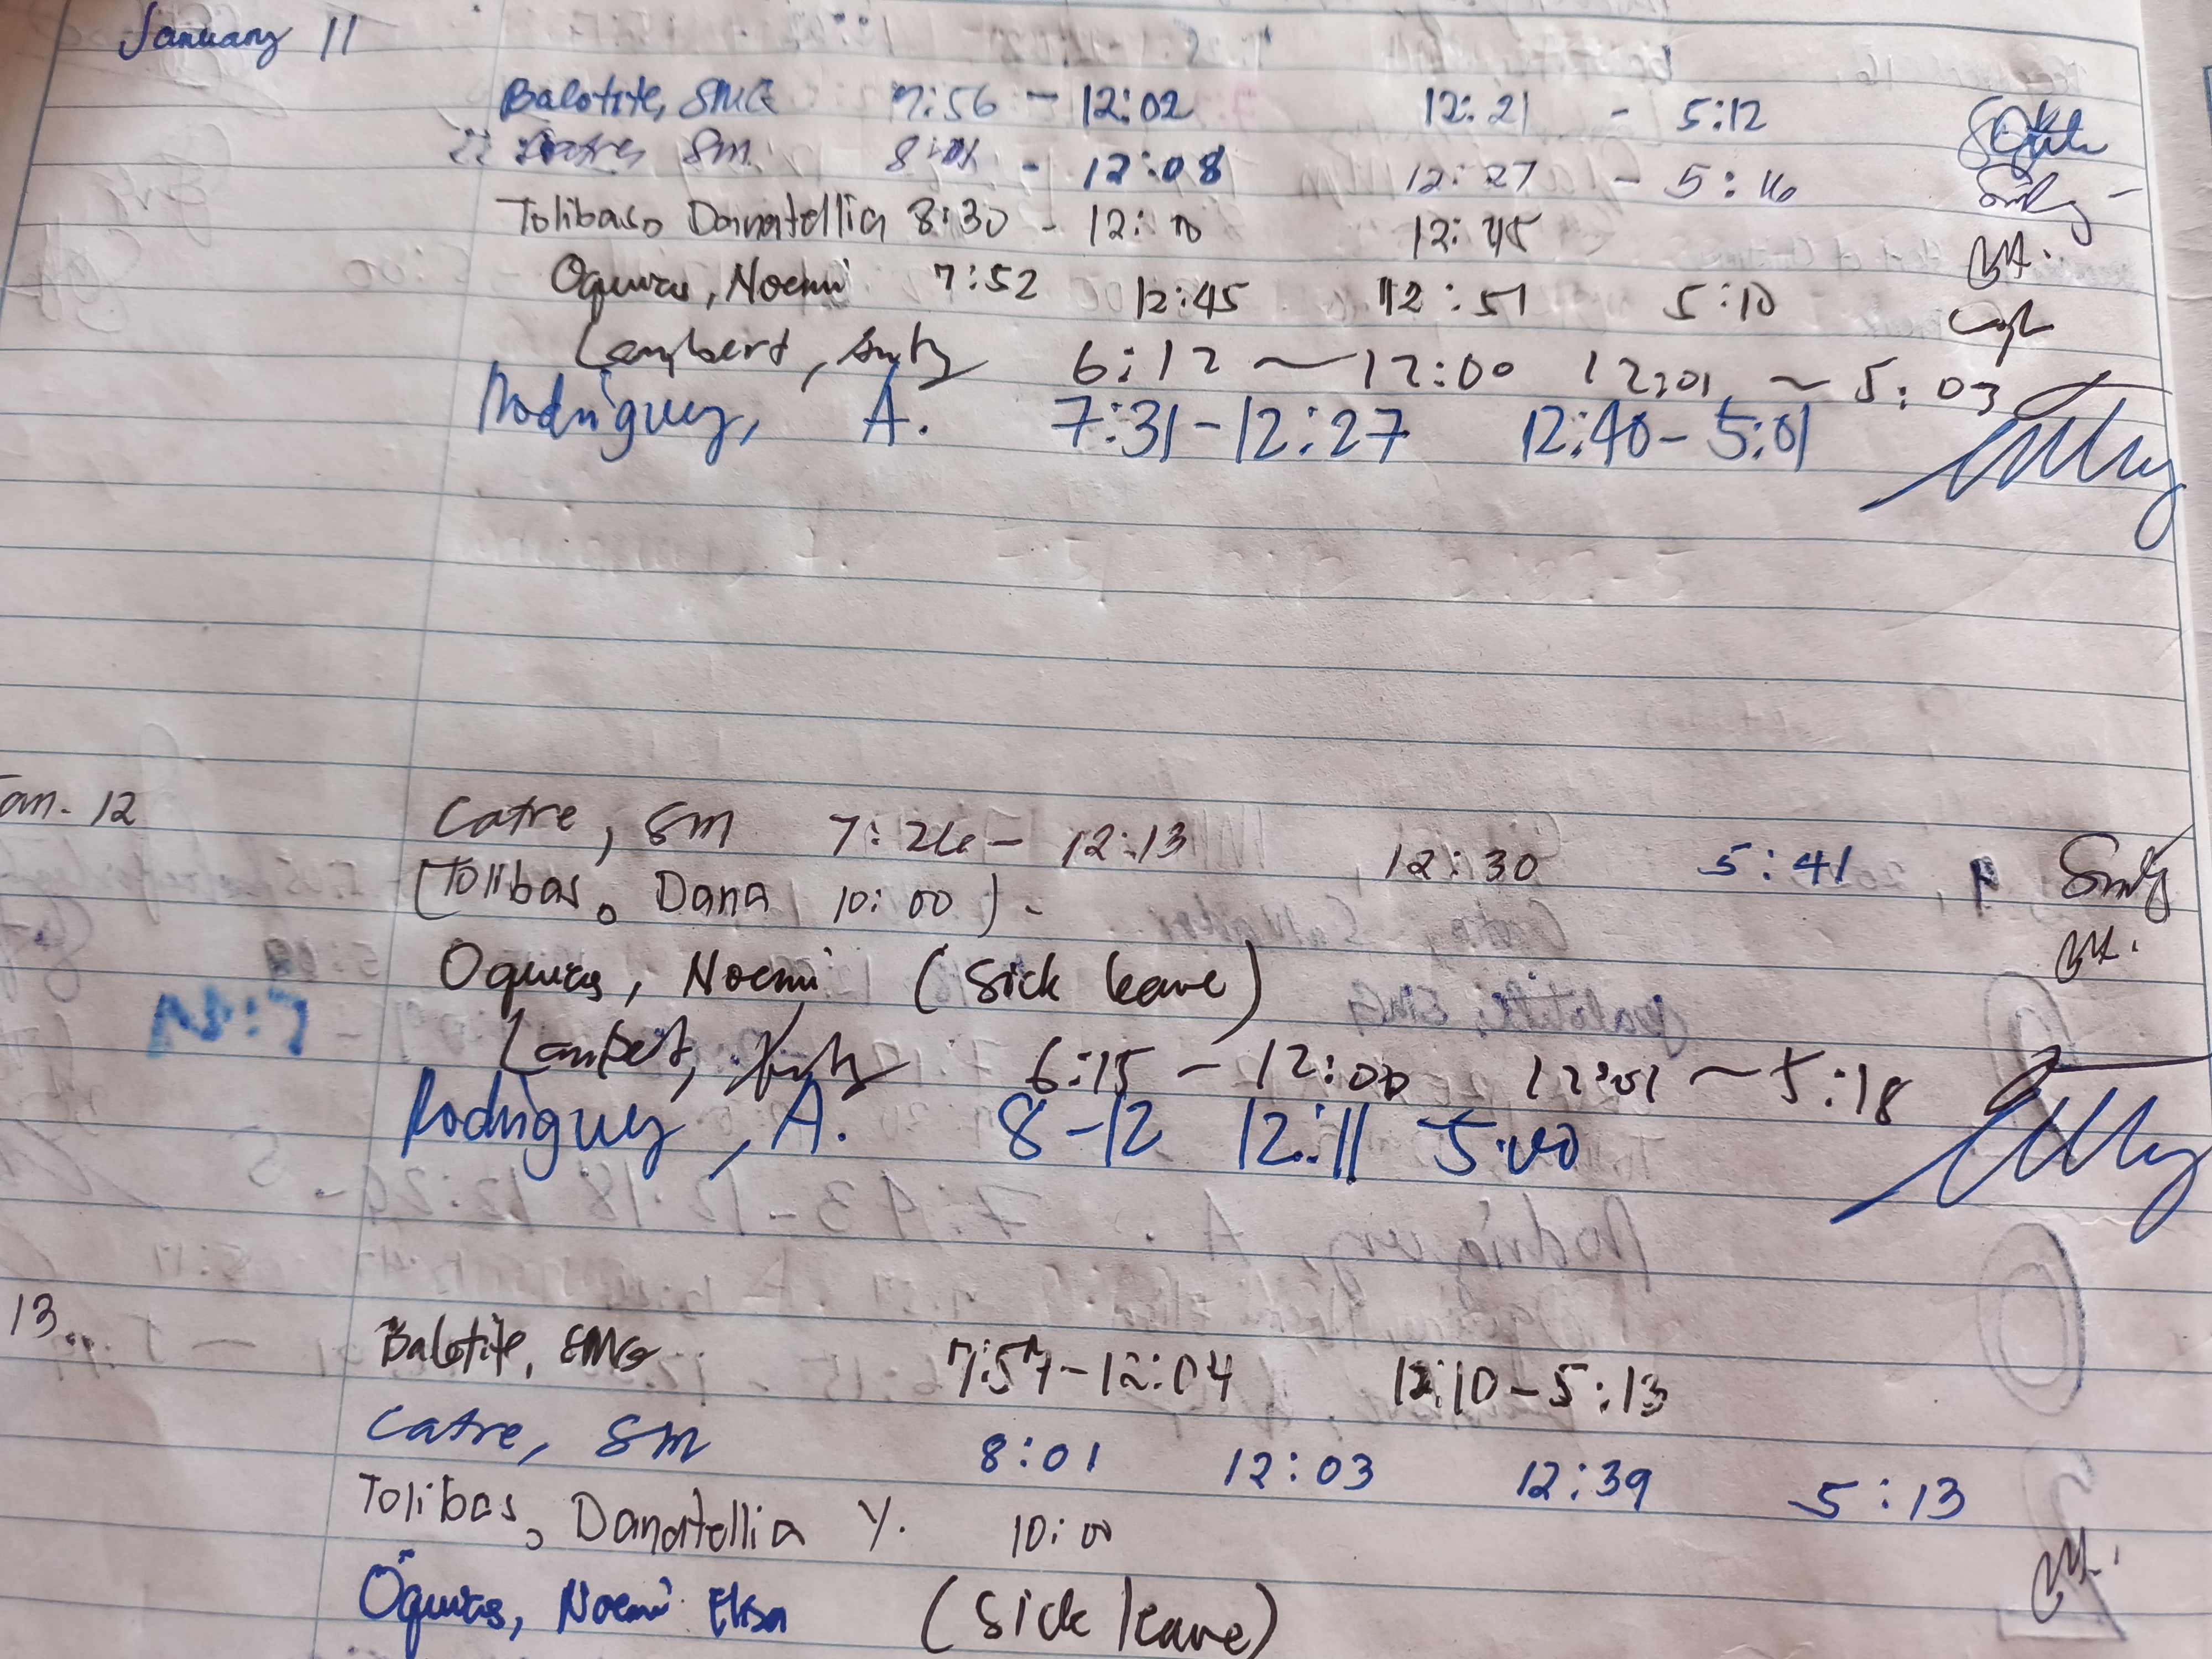 January 11
Balotite, SMG 7:56 - 12:02 12:21 - 5:12
Catre, SM 8:01 - 12:08 12:27 - 5:16
Tolibas, Danatellia 8:30 - 12:10 12:45
Oquias, Noemi 7:52 12:45 12:51 5:10
Lambert, 6:12 ~ 12:00 12:01 ~ 5:03
Rodriguez, A. 7:31 - 12:27 12:40 - 5:01
an. 12
Catre, SM 7:26 - 12:13 12:30 5:41
(Tolibas, Dana 10:00) -
Oquias, Noemi (sick leave)
Lambert, 6:15 - 12:00 12:01 ~ 5:18
Rodriguez, A. 8-12 12:11 5:00
13
Balotite, SMG 7:57 - 12:04 12:10 - 5:13
Catre, SM 8:01 12:03 12:39 5:13
Tolibas, Danatellia Y. 10:00
Oquias, Noemi Elisa (sick leave)